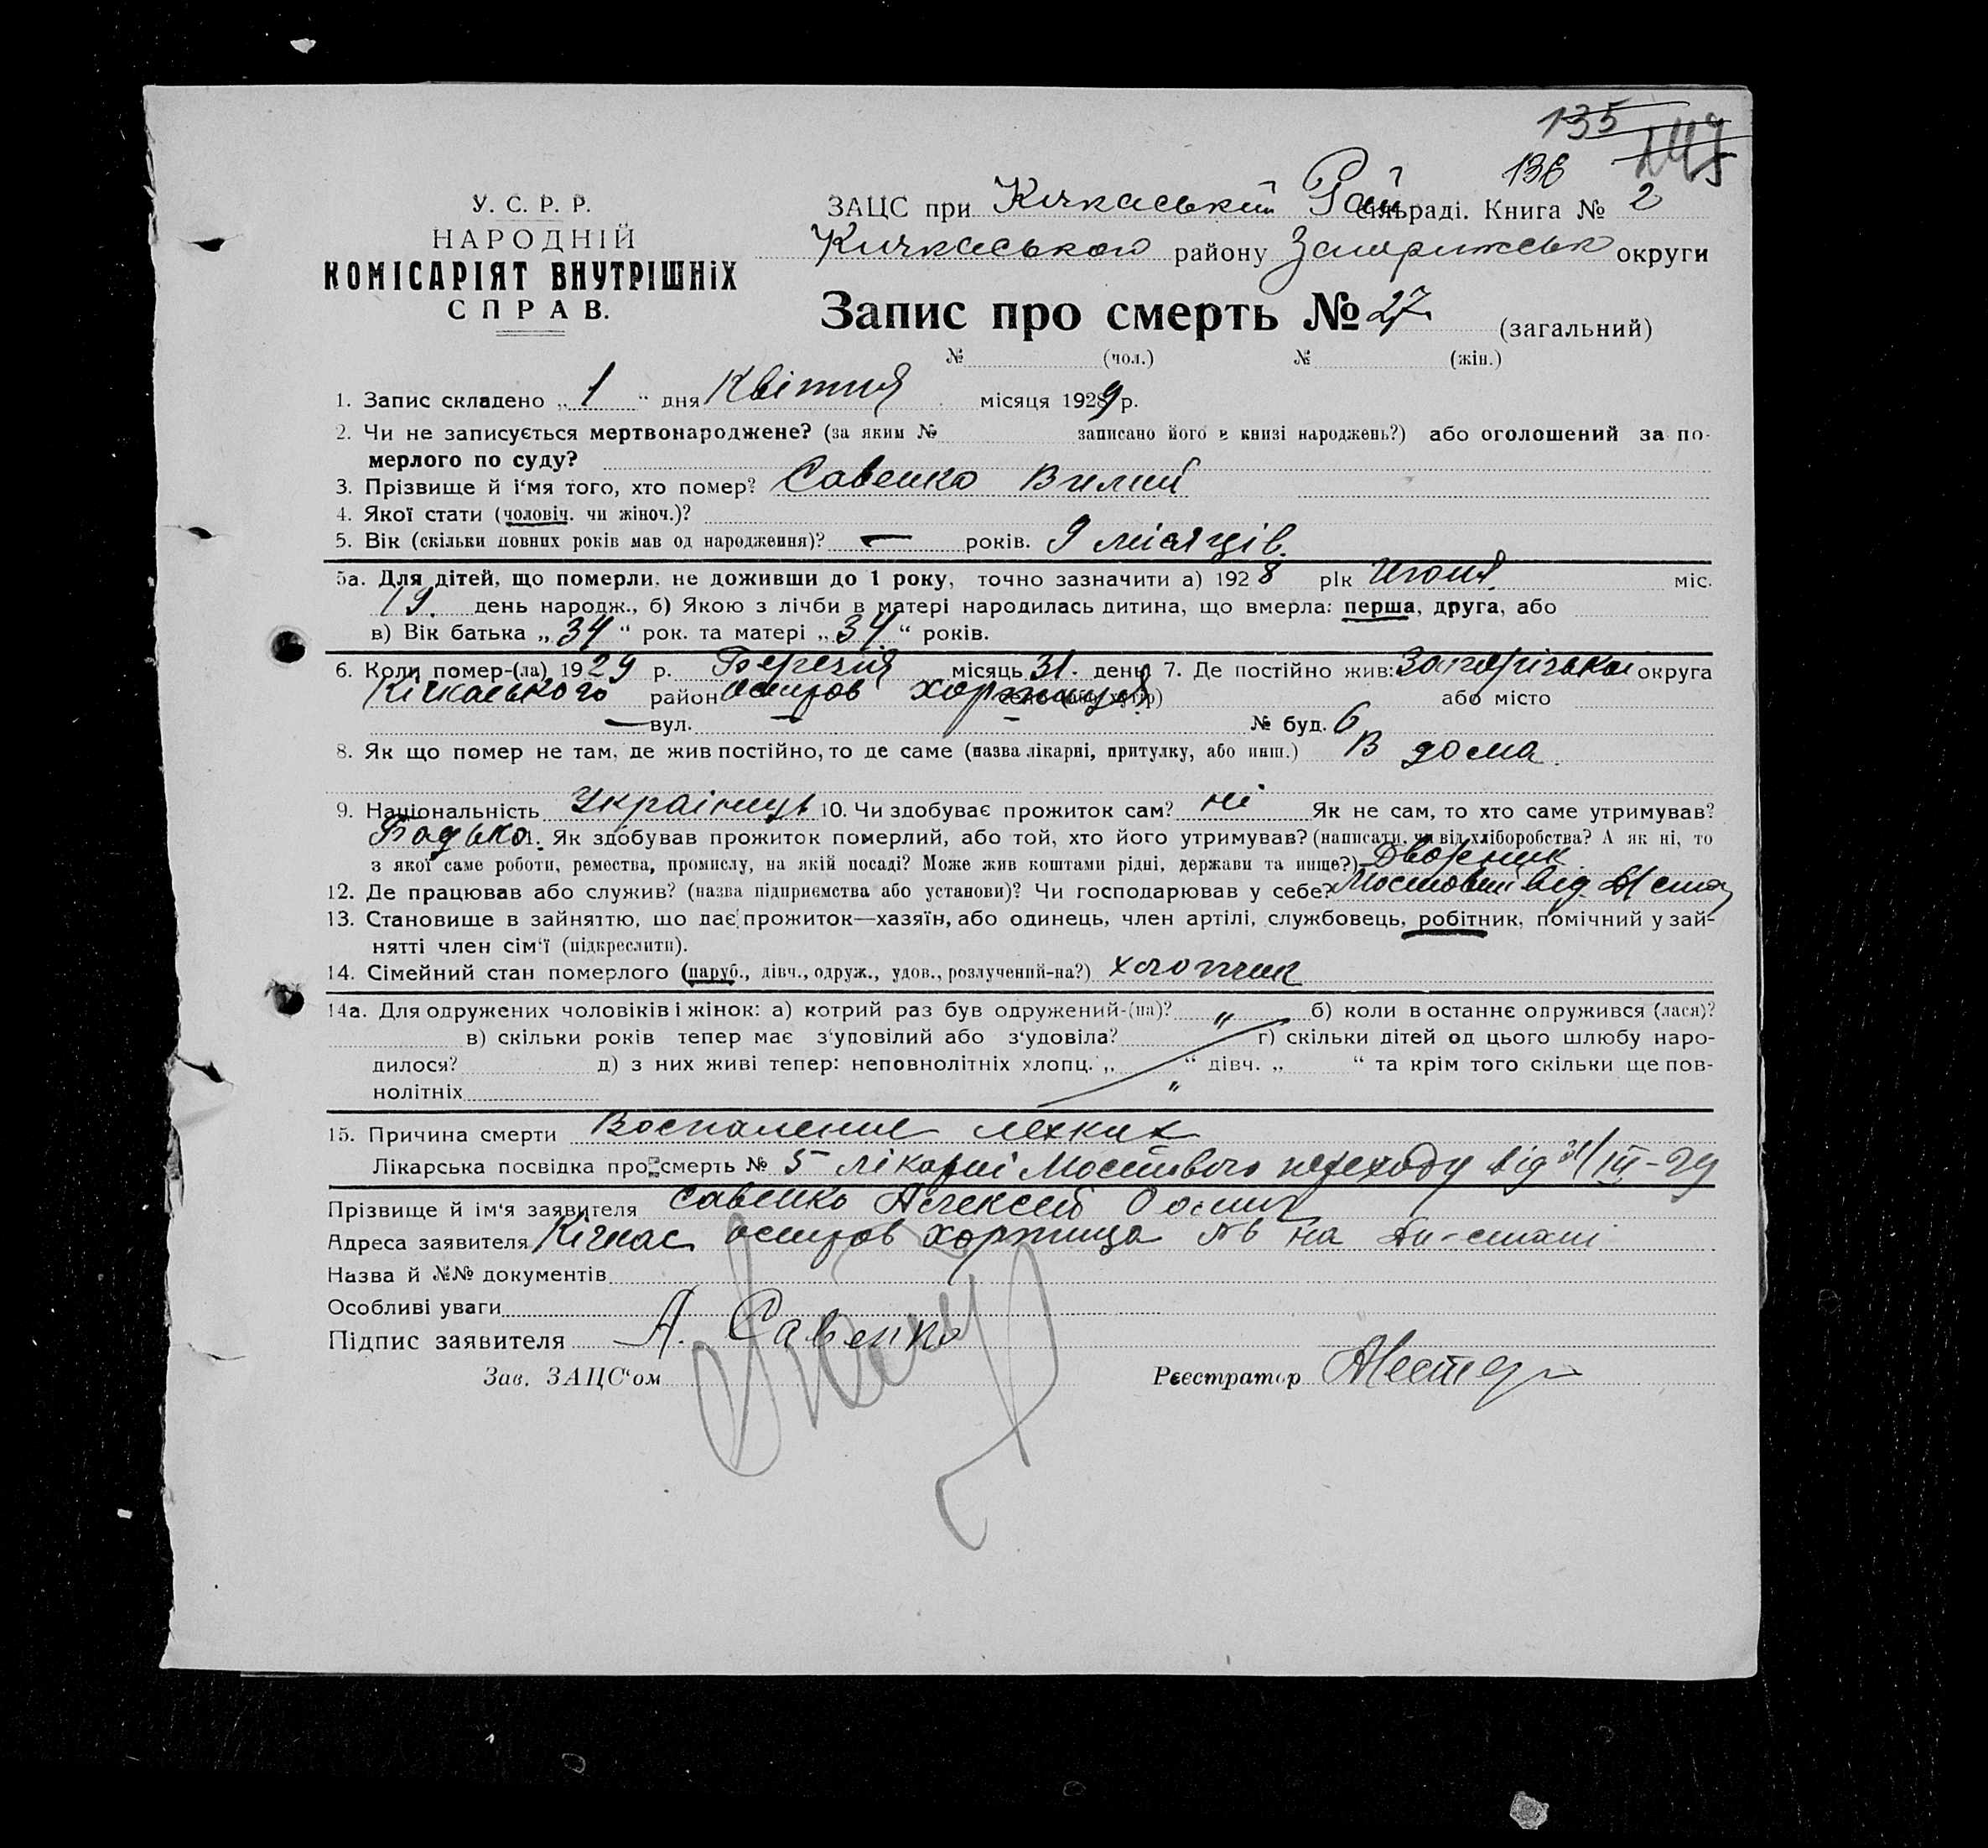 135
136
У. С. Р. Р.
НАРОДНІЙ
КОМІСАРІЯТ ВНУТРІШНІХ
СПРАВ.
ЗАЦС при Кічкаський Рай сільраді. Книга № 2
Кичкаського району Запорижськ округи
Запис про смерть № 27. (загальний)
№ (чол.) № (жін.)
1. Запис складено „ 1 “ дня Квітня місяця 1929 р.
2. Чи не записується мертвонароджене? (за яким № записано його в книзі народжень?) або оголошений за по-
мерлого по суду?
3. Прізвище й і'мя того, хто помер? Савенко Вилий
4. Якої стати (чоловіч. чи жіноч.)?
5. Вік (скільки повних років мав од народження)? — років. 9 місяців.
5а. Для дітей, що померли, не доживши до 1 року, точно зазначити а) 1928 рік Июня міс.
19. день народж., б) Якою з лічби в матері народилась дитина, що вмерла: перша, друга, або
в) Вік батька „ 34 “ рок. та матері „ 34 “ років.
6. Коли помер-(ла) 1929 р. Березня місяць 31. день 7. Де постійно жив: Запорізької округа
Кічкаського район остров Хортиця село (або хутір) або місто
— вул. — — № буд. 6
8. Як що помер не там, де жив постійно, то де саме (назва лікарні, притулку, або инш.) В дома.
9. Національність Українець 10. Чи здобуває прожиток сам? ні Як не сам, то хто саме утримував?
Бадько 11. Як здобував прожиток померлий, або той, хто його утримував? (написати, чи від хліборобства? А як ні, то
з якої саме роботи, ремества, промислу, на якій посаді? Може жив коштами рідні, держави та инше?) Дворник
12. Де працював або служив? (назва підприємства або установи)? Чи господарював у себе? Мостовий від.
13. Становище в зайняттю, що дає прожиток—хазяїн, або одинець, член артілі, службовець, робітник, помічний у зай-
нятті член сім'ї (підкреслити).
14. Сімейний стан померлого (паруб., дівч., одруж., удов., розлучений-на?) хлопчик
14а. Для одружених чоловіків і жінок: а) котрий раз був одружений-(на)? „ б) коли востаннє одружився (лася)?
в) скільки років тепер має з'уповілий або з'удовіла? г) скільки дітей од цього шлюбу наро-
дилося? д) з них живі тепер: неповнолітніх хлопц. „ “ дівч. „ “ та крім того скільки ще пов-
нолітніх „
15. Причина смерти Воспаление легких
Лікарська посвідка про смерть № 5 лікарні Мостового переходу від 31/III-29
Прізвище й ім'я заявителя Савенко Алексей
Адреса заявителя Кічкас остров Хортица № 6 на
Назва й №№ документів
Особливі уваги
Підпис заявителя А. Савенко
Зав. ЗАЦС'ом Реєстратор